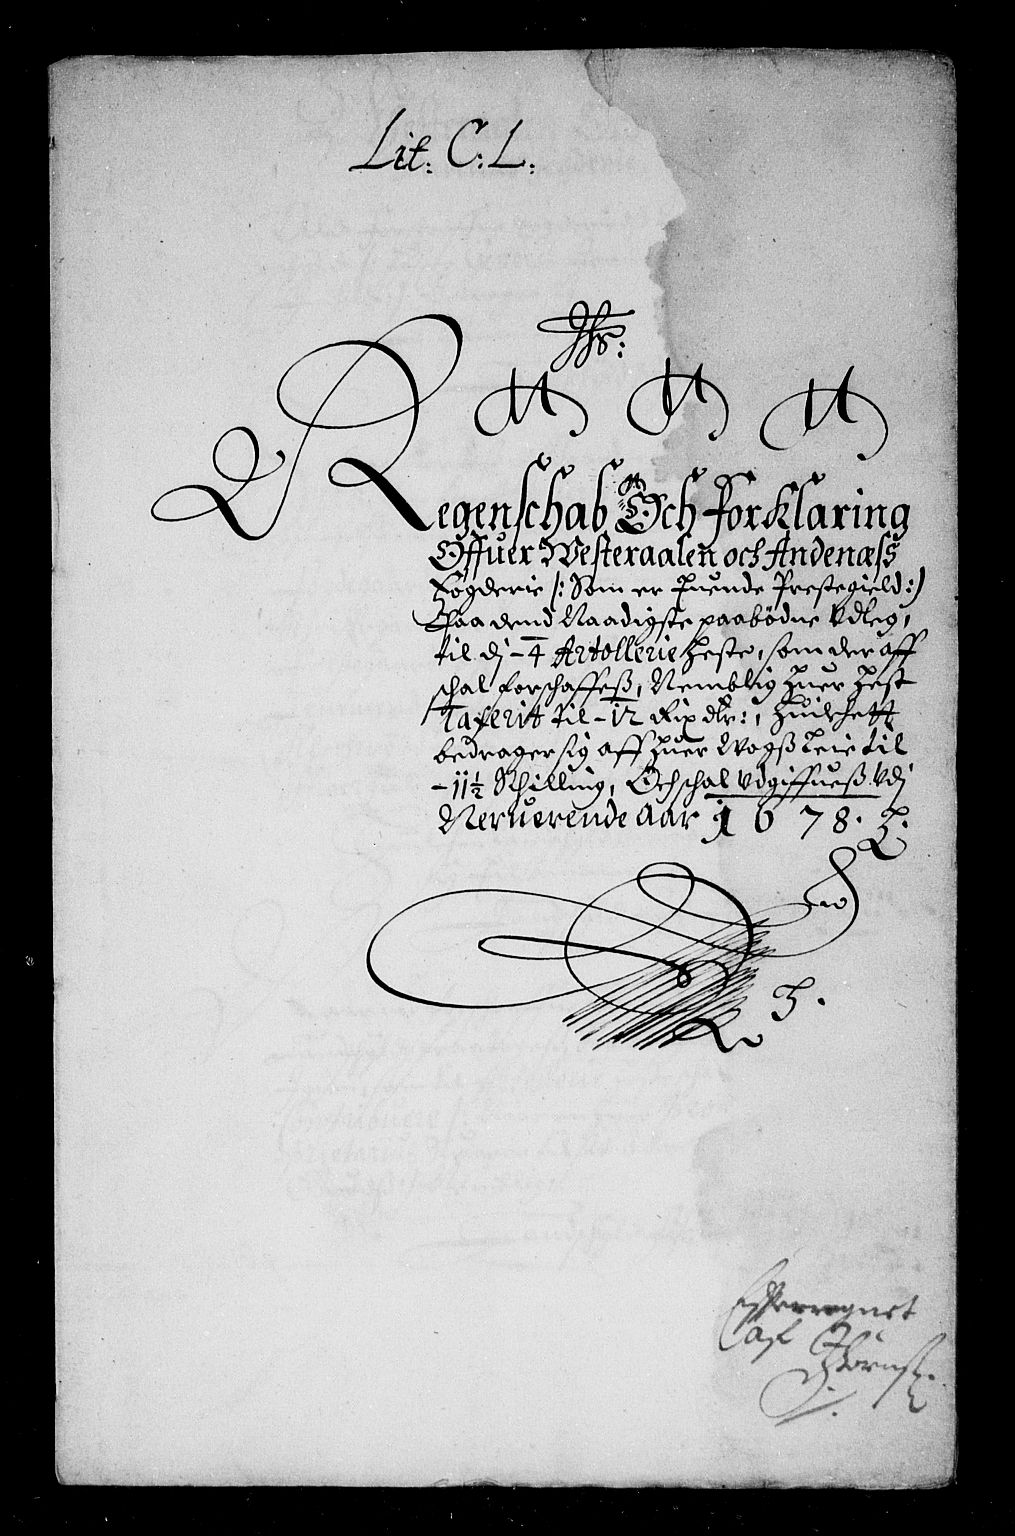 Lit: C: L:
Jhs:
Regenschab Och forklaring
Offuer Westeraalen och Andenæss
fogderie /: Som er Tuende Prestegield :/
Paa dend Naadigste paabödne Udleg,
til di - 4 Artollerie Heste, som der aff
schal forschaffeß, Nemblig Huer Hest
Taxerit til - 12 Rix dlr:, Huilchett
bedrager sig aff Huer Wogß Leie til
- 11½ Schilling, Och schal udgiffueß Udj
Neruerende Aar 1678.
Efterregnet